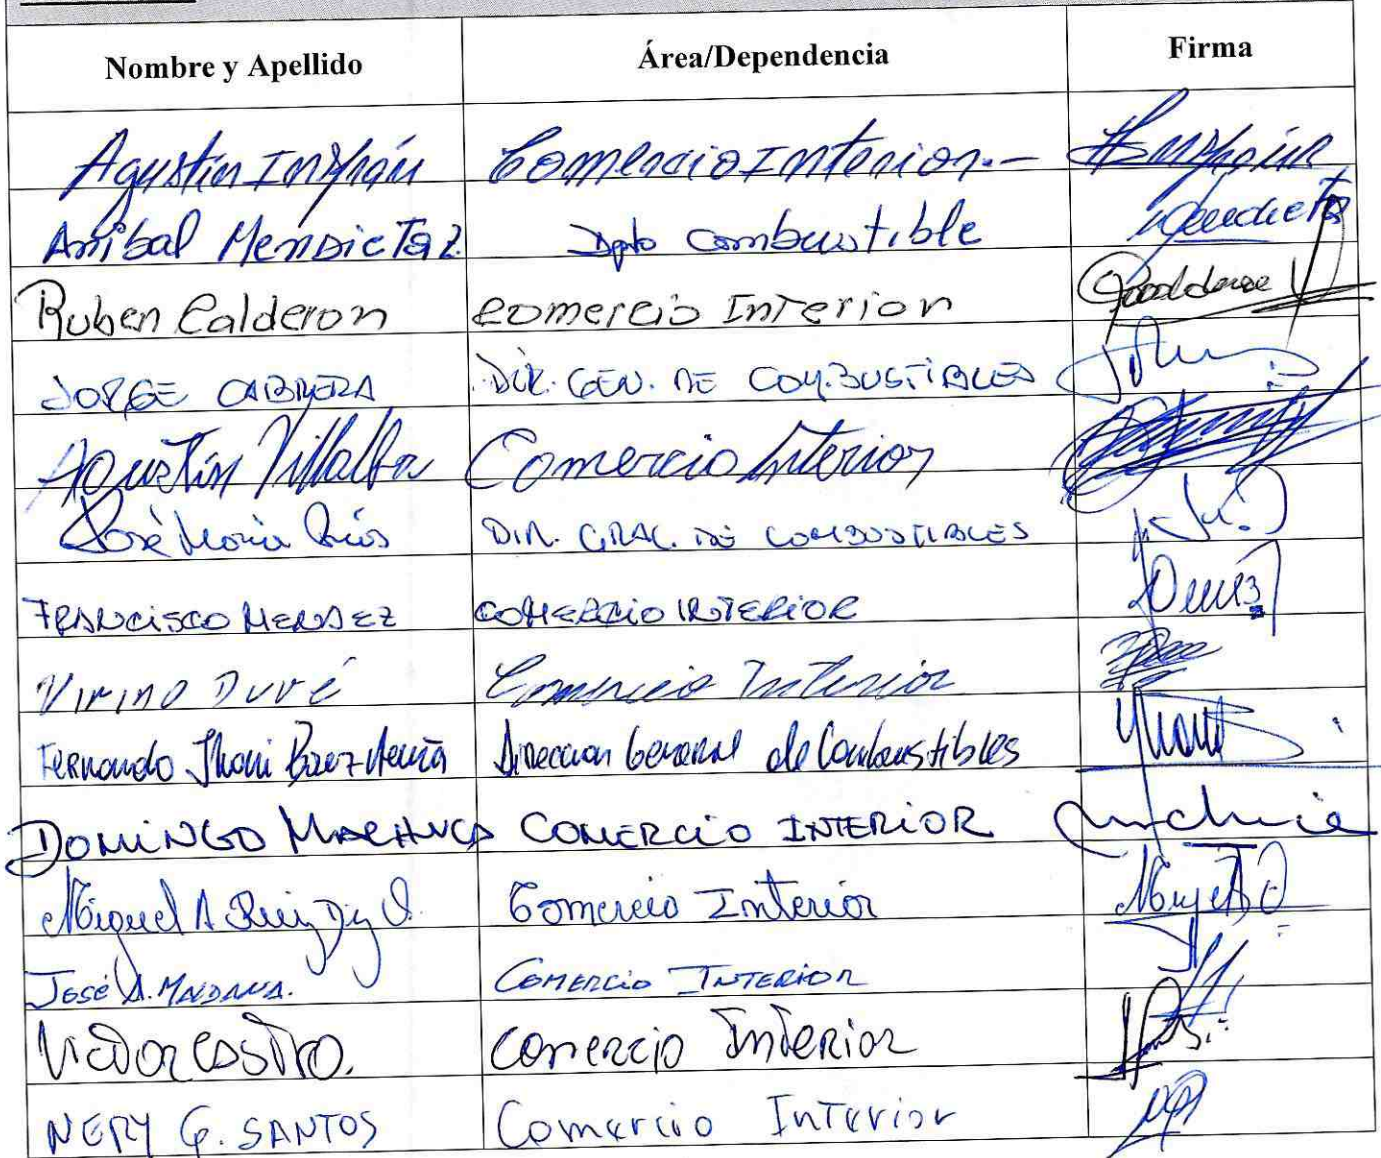 Nombre y Apellido Área/Dependencia Firma
Agustín Insfrán Comercio Interior.-
Anibal Mendieta Z. Dpto Combustible
Ruben Calderon Comercio Interior
JORGE CABRERA DIR. GEN. DE COMBUSTIBLES
Agustín Villalba Comercio Interior
José María Ríos DIR. GRAL. DE COMBUSTIBLES
FRANCISCO MENDEZ COMERCIO INTERIOR
Virino Duré Comercio Interior
Fernando Jhoni Baez Direccion General de Combustibles
DOMINGO MACHUCA COMERCIO INTERIOR
Miguel A. Ruiz Diz Comercio Interior
José A. MAIDANA. COMERCIO INTERIOR
Victor Castro. Comercio Interior
NERY G. SANTOS Comercio Interior